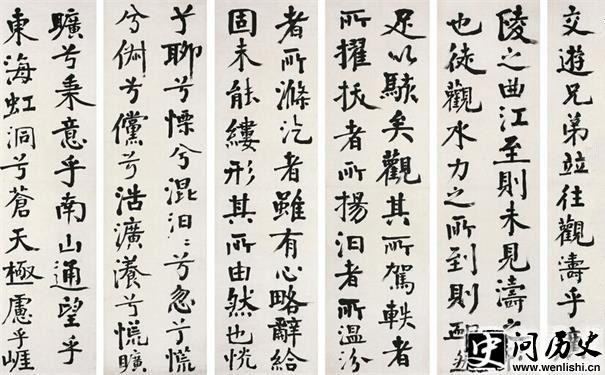 交遊兄弟竝往觀濤乎
陵之曲江至則未見濤之
也徒觀水力之所到則
足以駭矣觀其所駕軼者
所擢拔者所揚汩者所溫汾
者所滌汔者雖有心略辭給
固未能縷形其所由然也怳
兮聊兮慄兮混汩〻兮忽兮慌
兮俶兮儻兮浩瀇瀁兮慌曠
曠兮秉意乎南山通望乎
東海虹洞兮蒼天極慮乎崕
问历史
www.wenlishi.cn